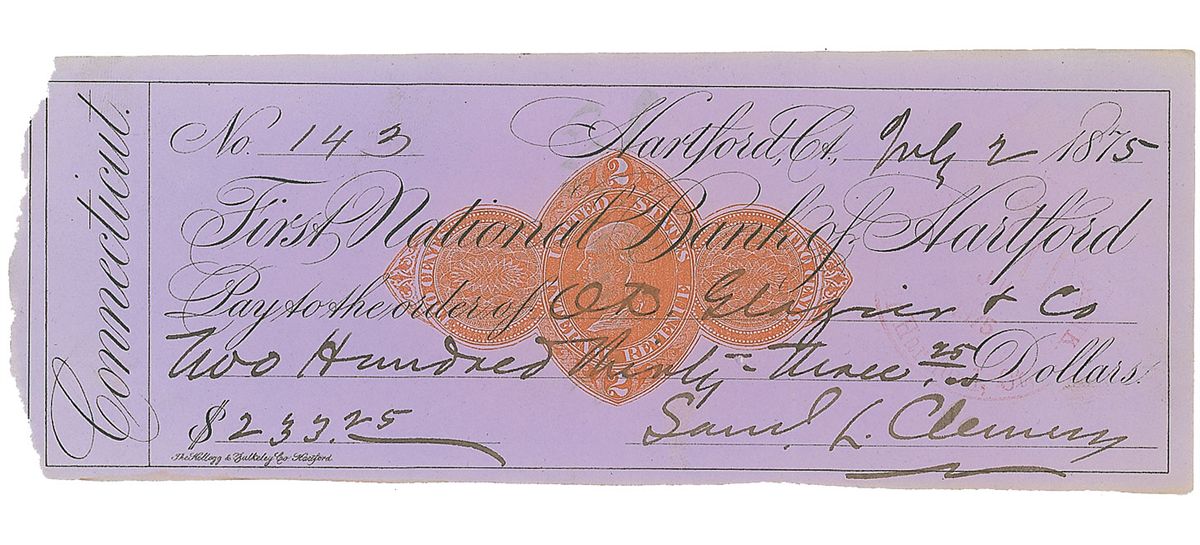 Connecticut.
No. 143 Hartford, Ct., July 2 1875
First National Bank of Hartford
Pay to the order of O.D. Glazier & Co
Two Hundred Thirty-three 25/100 Dollars
$ 233.25 Saml. L. Clemens
The Kellogg & Bulkeley Co. Hartford
2
UNITED STATES
INTERNAL REVENUE
2